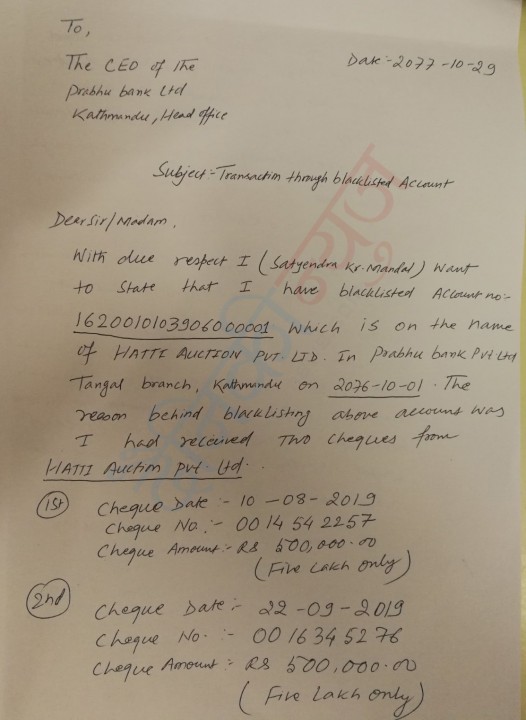 To,
The CEO of the
Date:-2077-10-29
Prabhu bank Ltd
Kathmandu, Head office
Subject:-Transaction through blacklisted Account
Dear Sir/Madam,
With due respect I (Satyendra Kr. Mandal) want
to state that I have blacklisted Account no:-
1620010103906000001 which is on the name
of HATTI AUCTION PVT. LTD. In Prabhu bank Pvt Ltd
Tangal branch, Kathmandu on 2076-10-01. The
reason behind blacklisting above account was
I had received two cheques from
HATTI Auction Pvt. Ltd.
1st Cheque Date :- 10-08-2019
Cheque No.:- 0014542257
Cheque Amount:- RS 500,000.00
(Five Lakh only)
2nd Cheque Date:- 22-09-2019
Cheque No. :- 0016345276
Cheque Amount:- RS 500,000.00
(Five Lakh only)